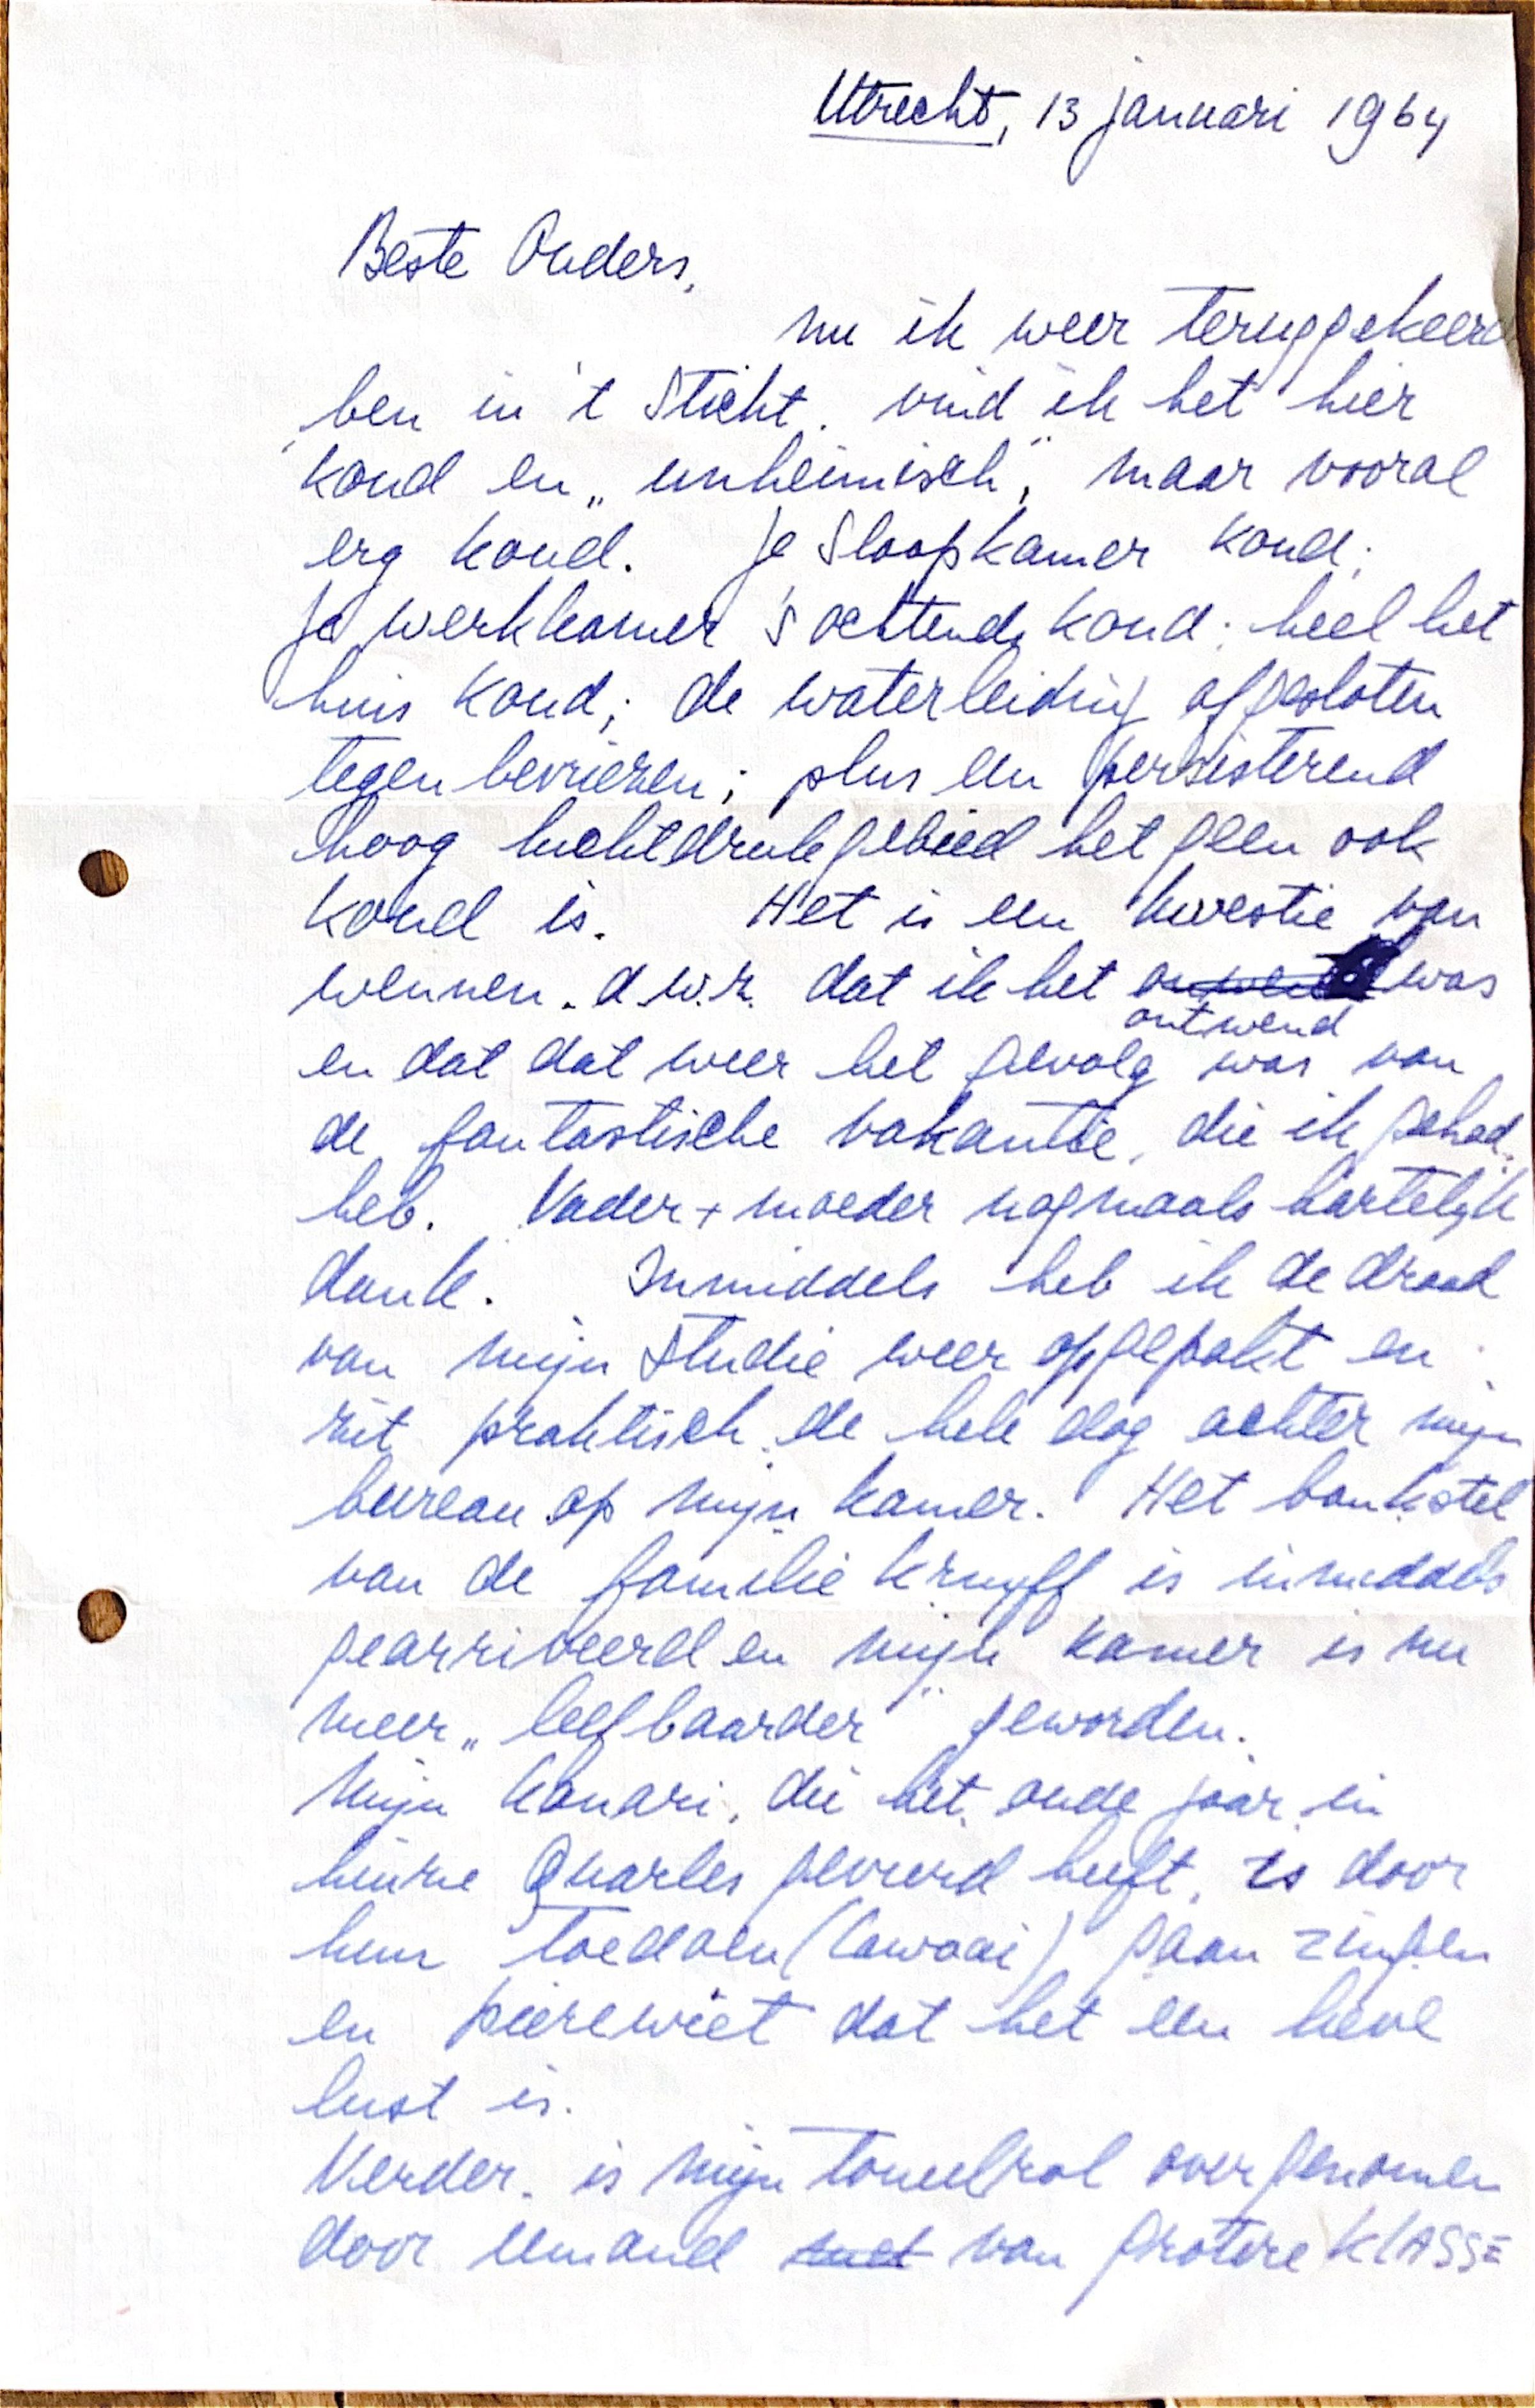 Utrecht, 13 januari 1964
Beste Ouders,
nu ik weer teruggekeerd
ben in 't Sticht. vind ik het hier
koud en „unheimisch", maar vooral
erg koud. Je slaapkamer koud;
Je werkkamer 's ochtends koud; heel het
huis koud; de waterleiding afgesloten
tegen bevriezen; plus een persisterend
hoog luchtdrukgebied hetgeen ook
koud is. Het is een kwestie van
wennen. d.w.z. dat ik het was
ontwend
en dat dat weer het gevolg was van
de fantastische vakantie, die ik gehad
heb. Vader + moeder nogmaals hartelijk
dank. Inmiddels heb ik de draad
van mijn studie weer opgepakt en
zit praktisch de hele dag achter mijn
bureau op mijn kamer. Het bankstel
van de familie Kruyff is inmiddels
gearriveerd en mijn kamer is nu
meer „leefbaarder" geworden.
Mijn kanari, die het oude jaar in
huize Quarles gevierd heeft, is door
hun toedoen (lawaai) gaan zingen
en pierewiet dat het een lieve
lust is.
Verder. is mijn toneelrol overgenomen
door iemand met van grotere KLASSE